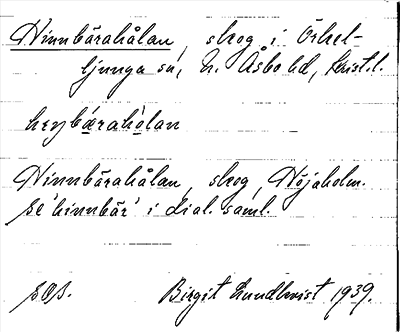 Hinnbärahålan, skog i Örkel-
ljunga sn, N. Åsbo hd, Krist.l.
henbáraholan
Hinnbärahålan, skog, Höjaholm.
se 'hinnbär' i dial. saml.
SOS. Birgit Lundkvist 1939.